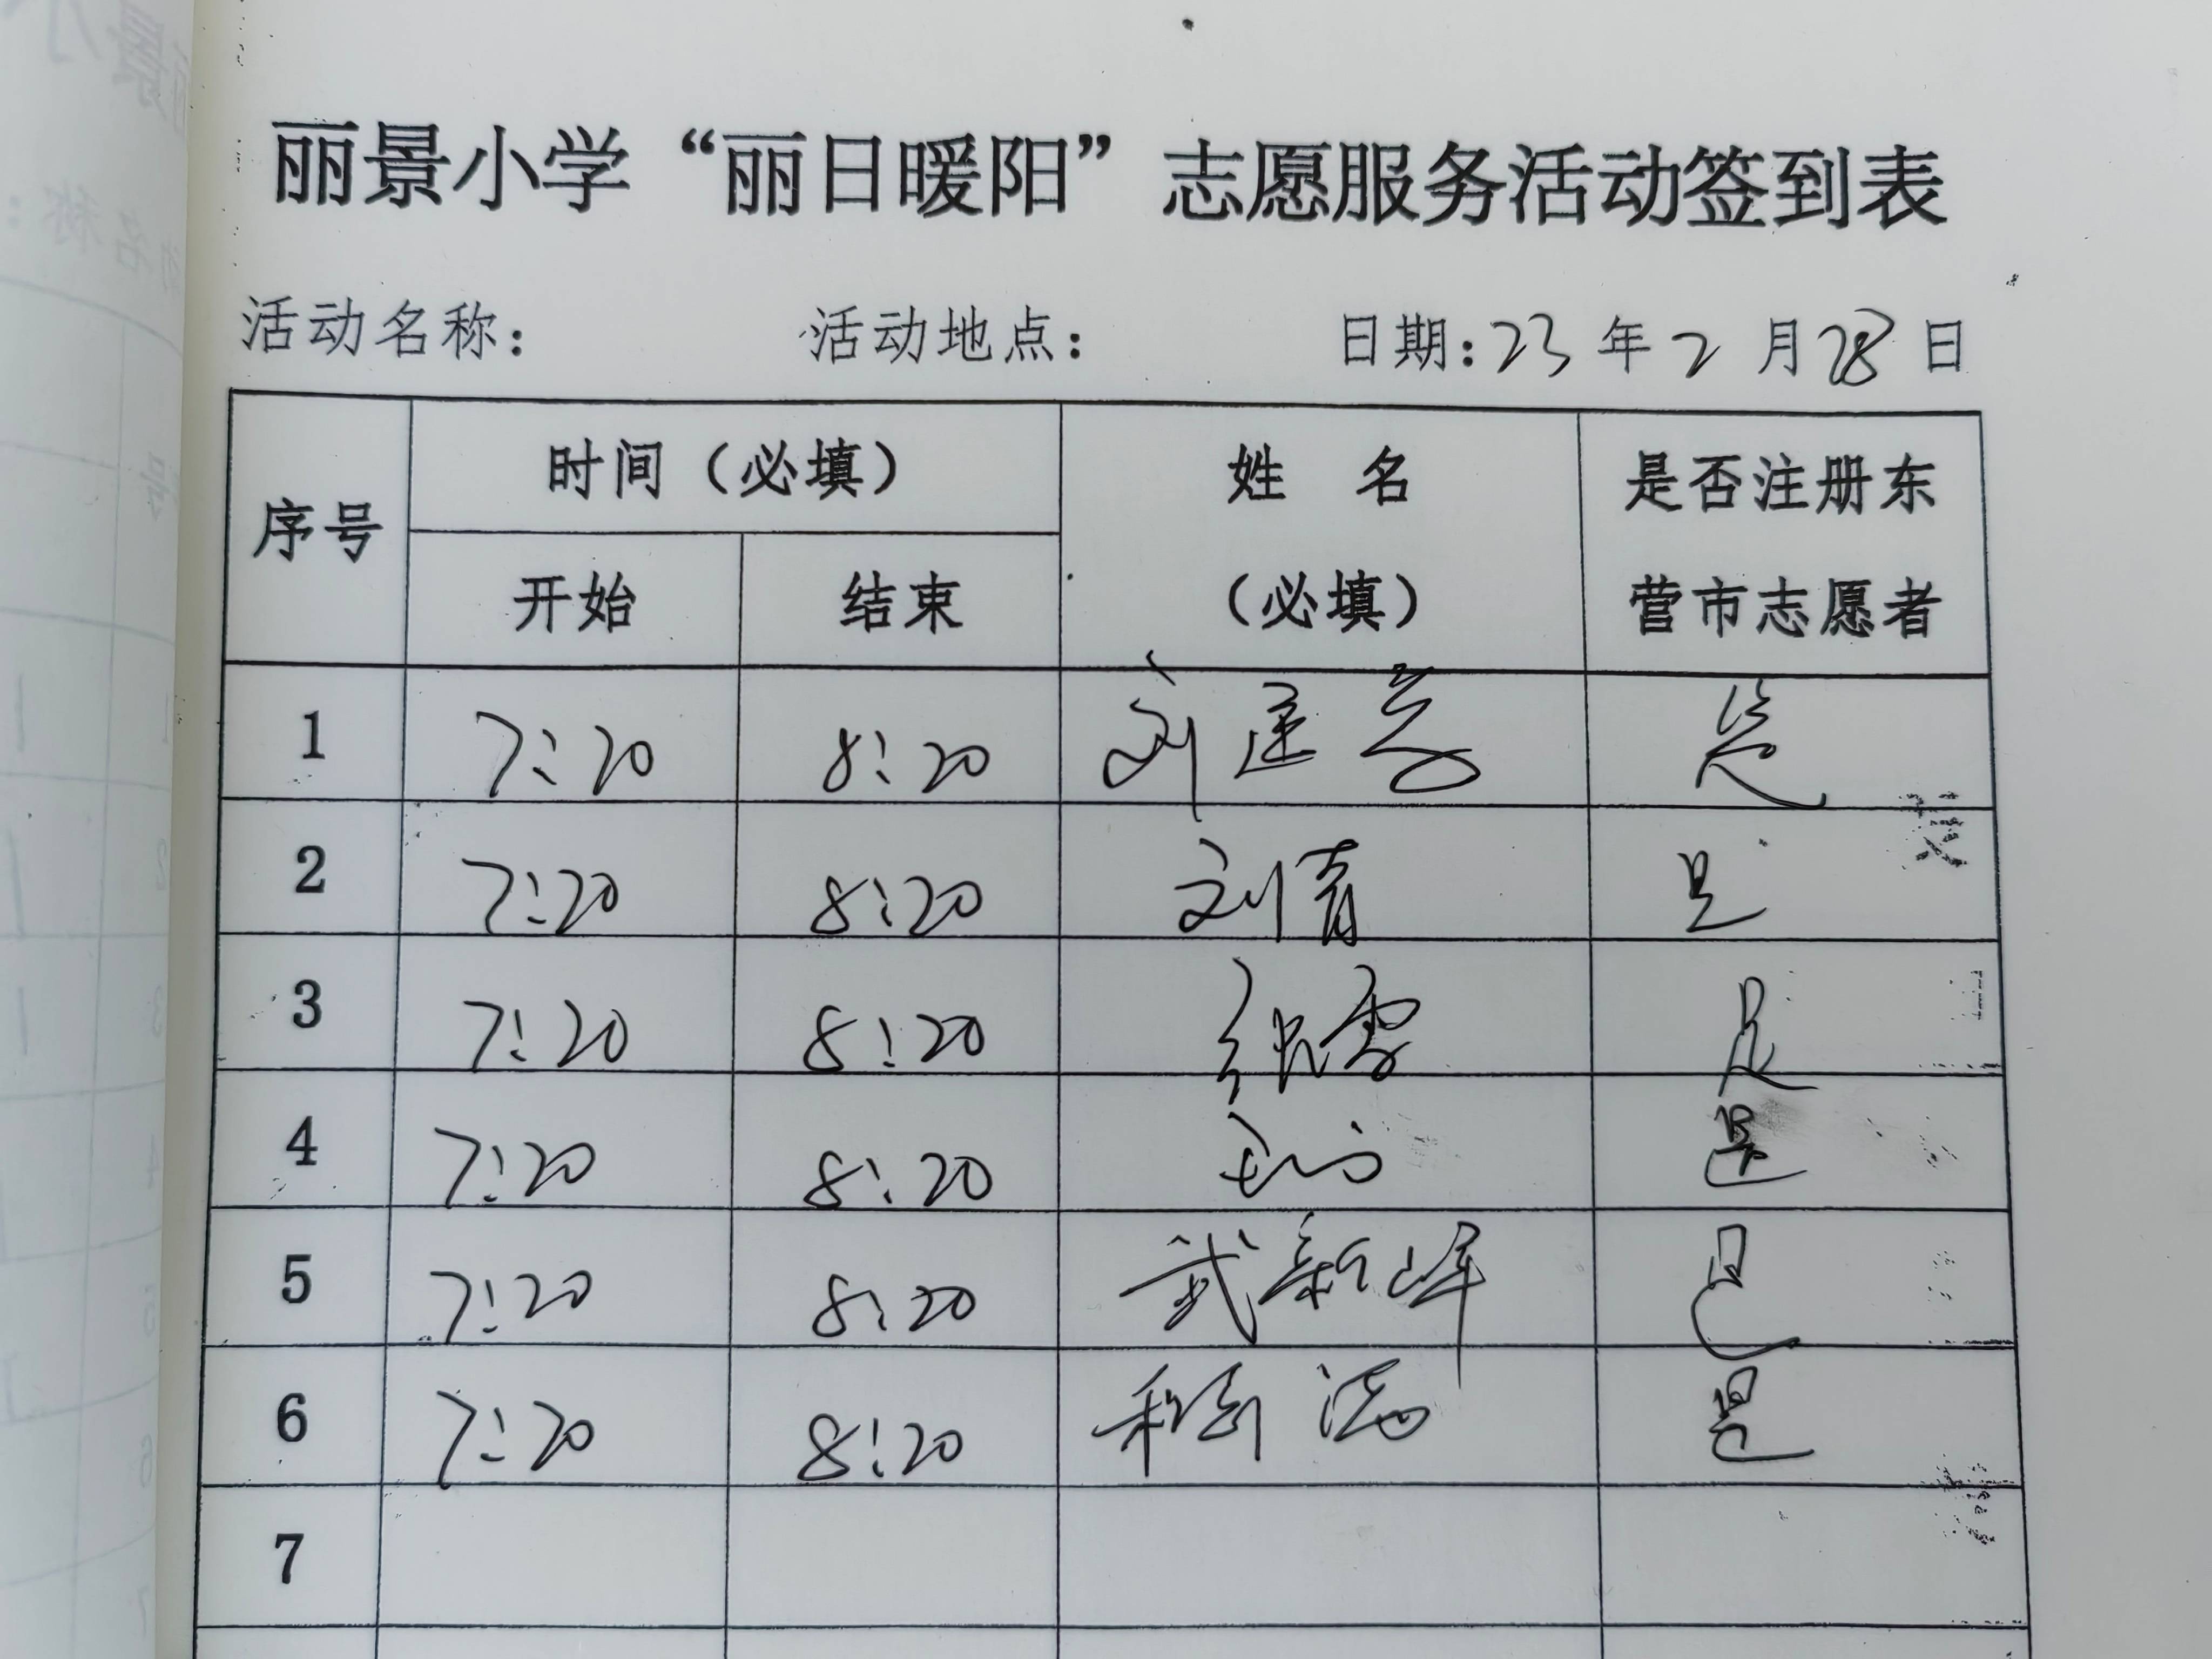 丽景小学“丽日暖阳”志愿服务活动签到表
活动名称： 活动地点： 日期：23 年 2 月 28 日
序号 时间（必填） 姓 名 （必填） 是否注册东
营市志愿者
开始 结束
1 7:20 8:20 刘 是
2 7:20 8:20 刘青 是
3 7:20 8:20 是
4 7:20 8:20 是
5 7:20 8:20 武新峰 是
6 7:20 8:20 是
7